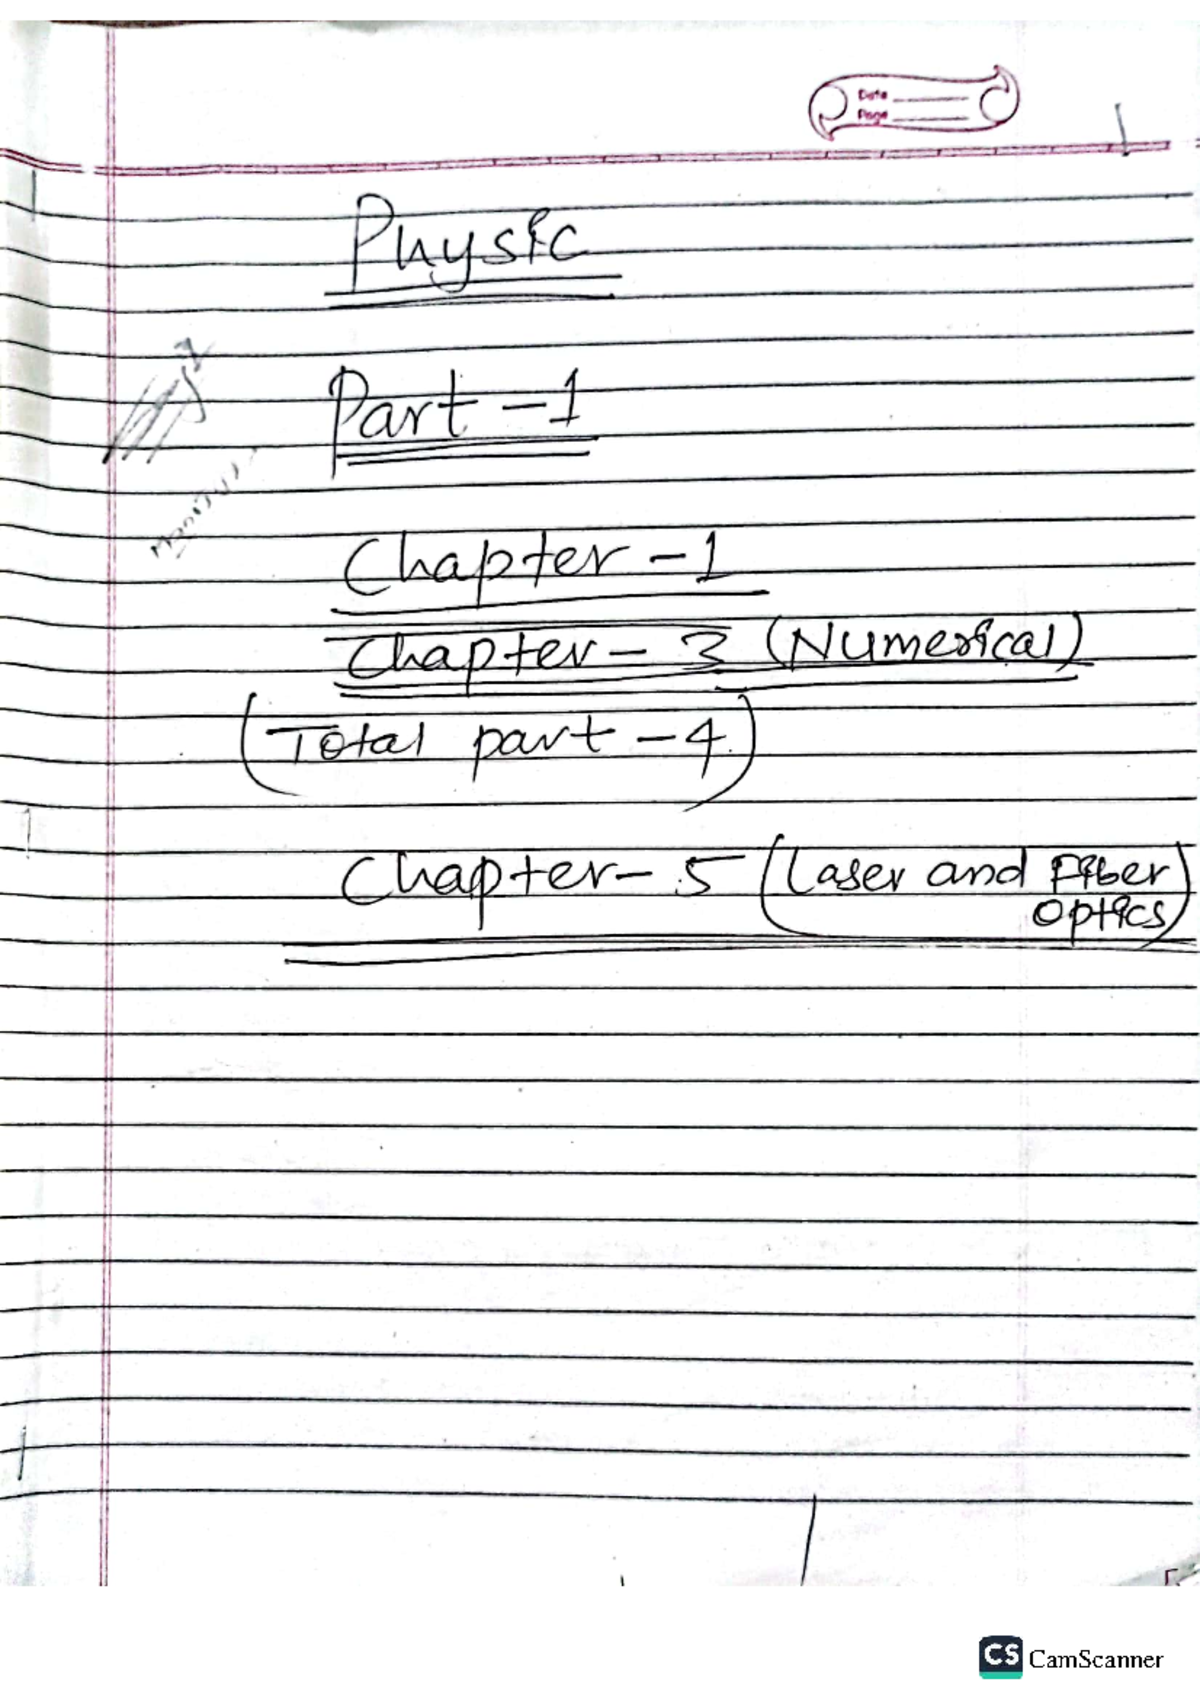 Date
Page
Physic
Part - 1
Chapter - 1
Chapter - 3 (Numerical)
(Total part - 4)
Chapter - 5 (Laser and Fiber
Optics)
CS CamScanner